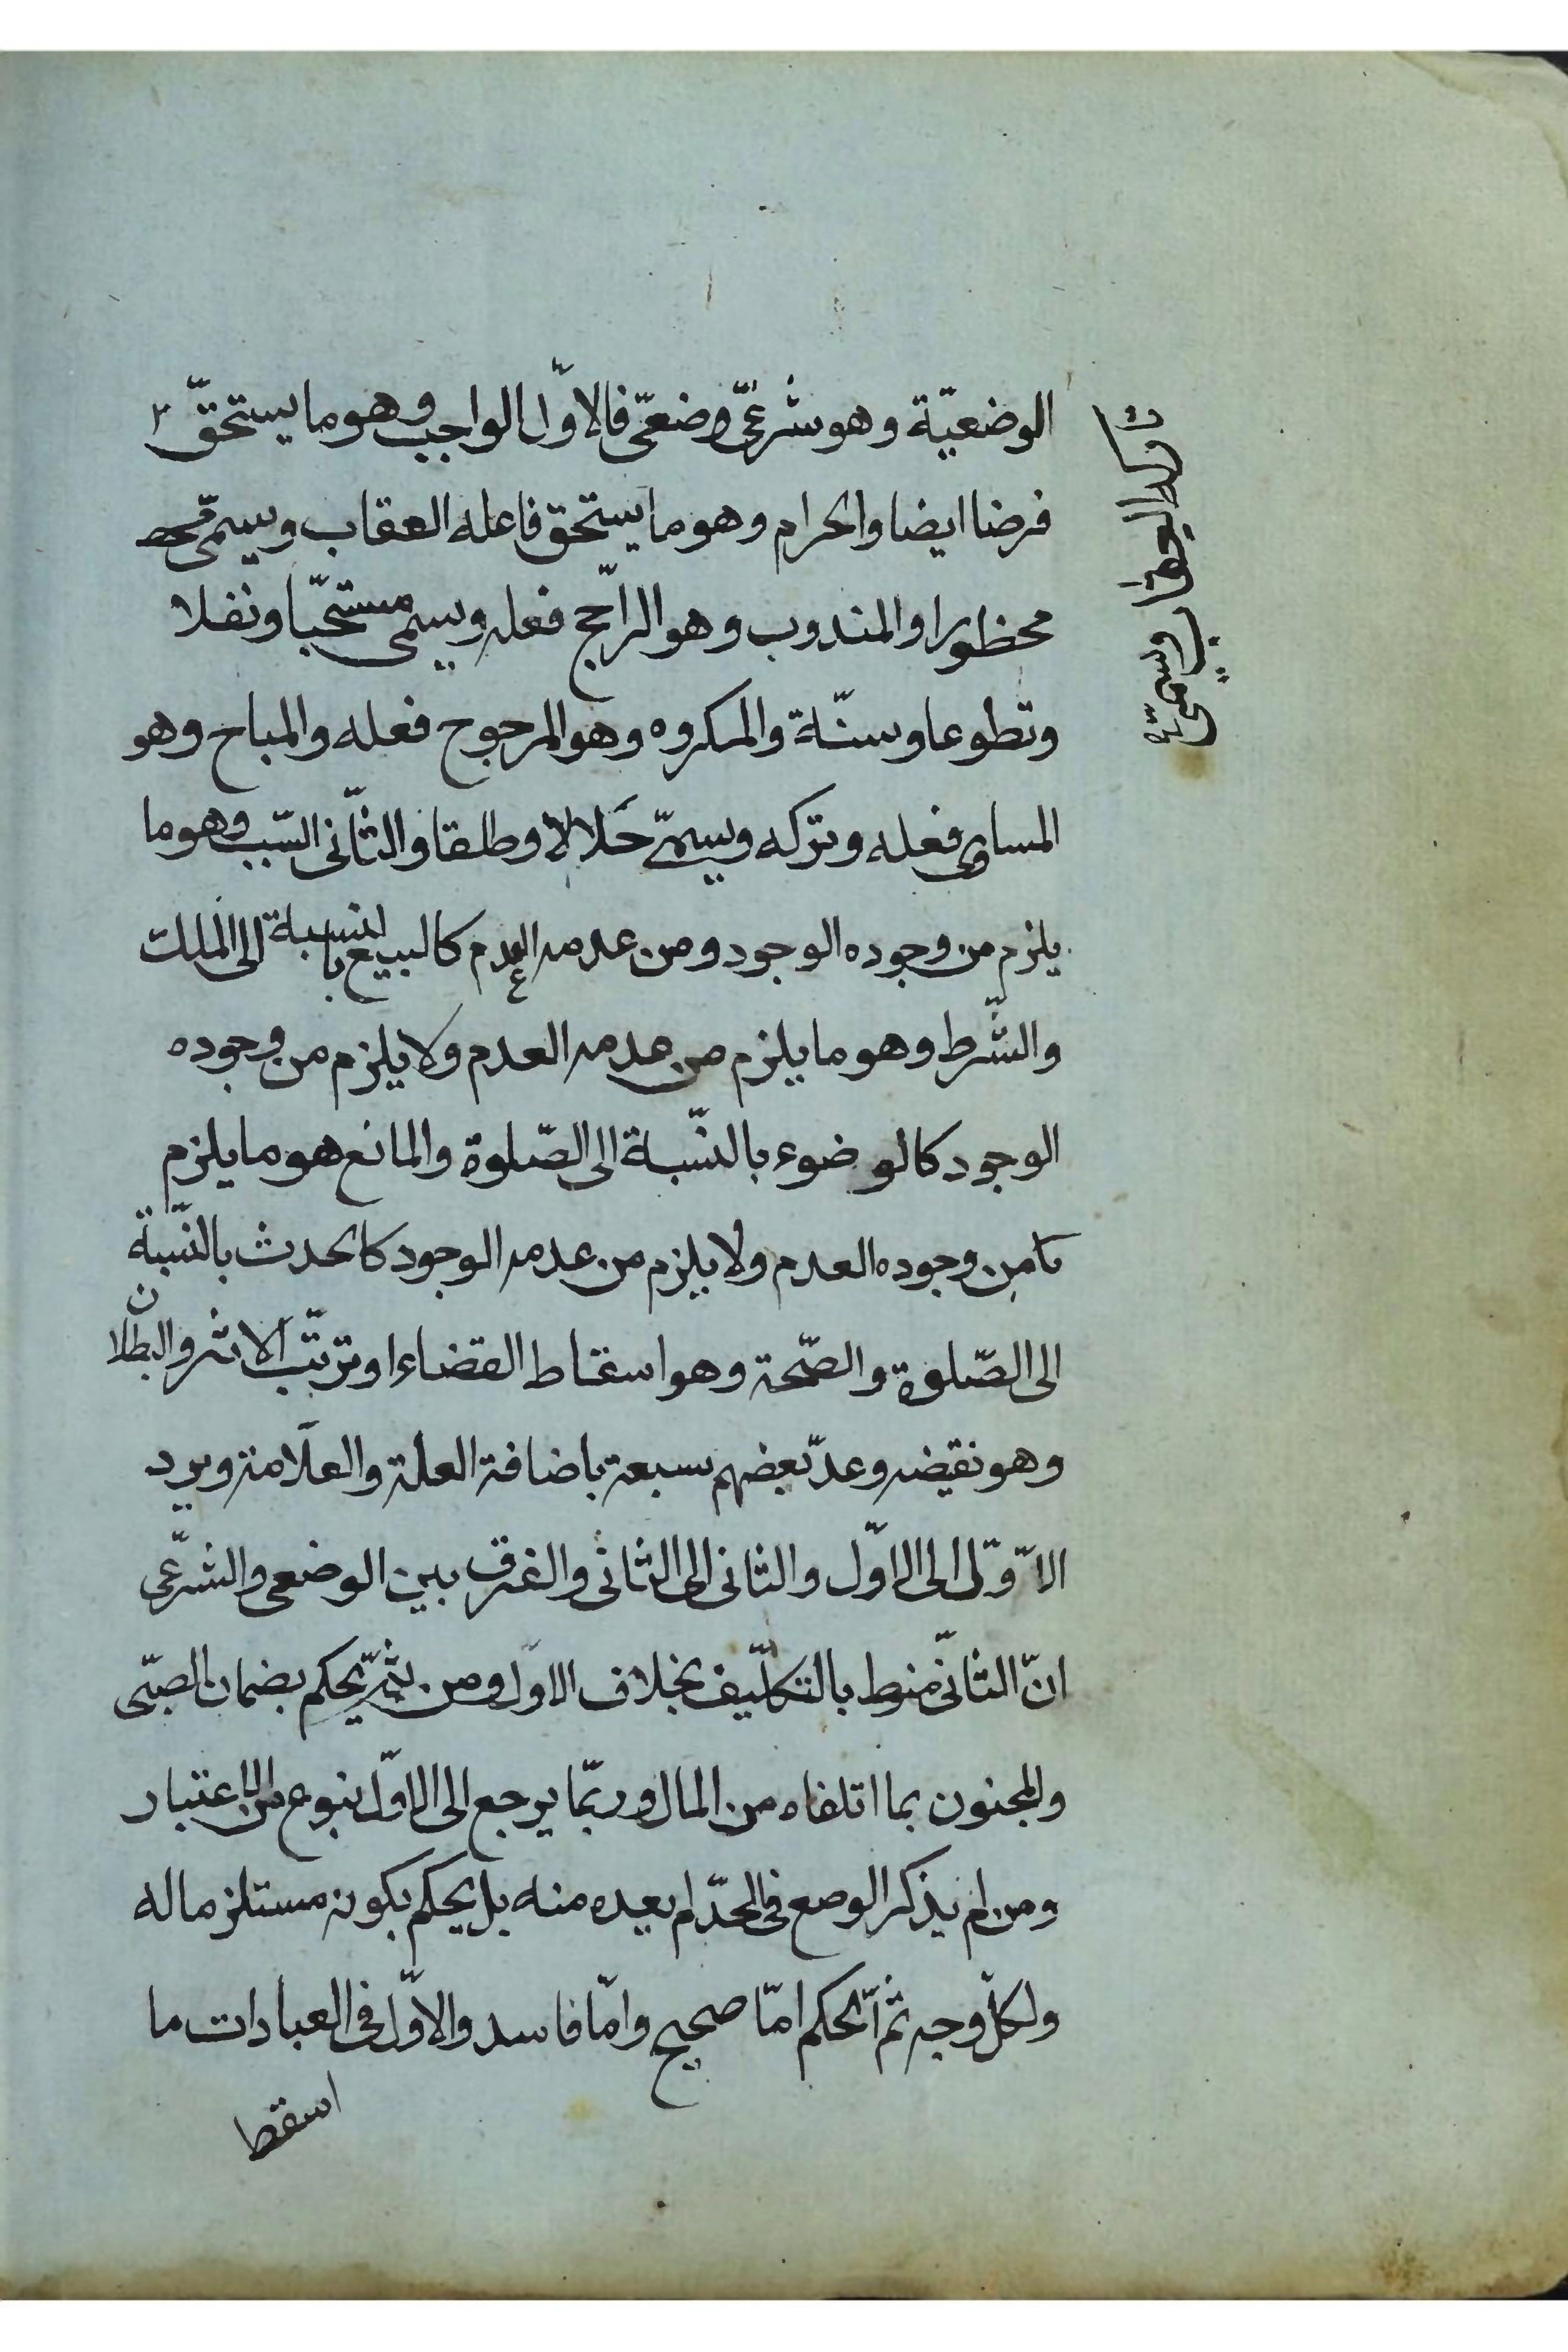 الوضعيّة وهو شرعىّ وضعىّ فالاوّل الواجب وهو ما يستحقّ
تاركه العقاب ويسمّى
فرضا ايضا والحرام وهو ما يستحق فاعله العقاب ويسمّى
محظورا والمندوب وهو الراجح فعله ويسمى مستحبّا ونفلا
وتطوعا وسنّة والمكروه وهو المرجوح فعله والمباح وهو
المساوى فعله وتركه ويسمّى حَلالا وطلقا والثّانى السّبب وهو ما
يلزم من وجوده الوجود ومن عدمه العدم كالبيع بالنسبة الى الملك
والشّرط وهو ما يلزم من عدمه العدم ولا يلزم من وجوده
الوجود كالوضوء بالنّسبة الى الصّلوة والمانع هو ما يلزم
من وجوده العدم ولا يلزم من عدمه الوجود كالحدث بالنّسبة
الى الصّلوة والصّحة وهو اسقاط القضاء او ترتّب الاثر والبطلان
وهو نقيضه وعدّ بعضهم سبعة باضافة العلة والعلامة ويرد
الاوّل الى الاوّل والثانى الى الثانى والفرق بين الوضعى والشّرعى
انّ الثانىّ منوط بالتكلّيف بخلاف الاوّل ومن ثمّ يحكم بضمان الصبّى
والمجنون بما اتلفاه من المال وربّما يرجع الى الاوّل بنوع من الاعتبار
ومن لم يذكر الوضع فى الحدّ لم يعده منه بل يحكم بكونه مستلزما له
ولكلّ وجه ثمّ الحكم امّا صحيح وامّا فاسد والاوّل فى العبادات ما
اسقط